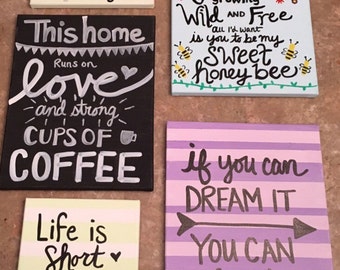 This home
Runs on
love
and strong
CUPS OF
COFFEE
growing
Wild AND Free
All I'd want
is you to be my
SWEET
honey bee
Life is
Short
if you can
DREAM IT
YOU CAN